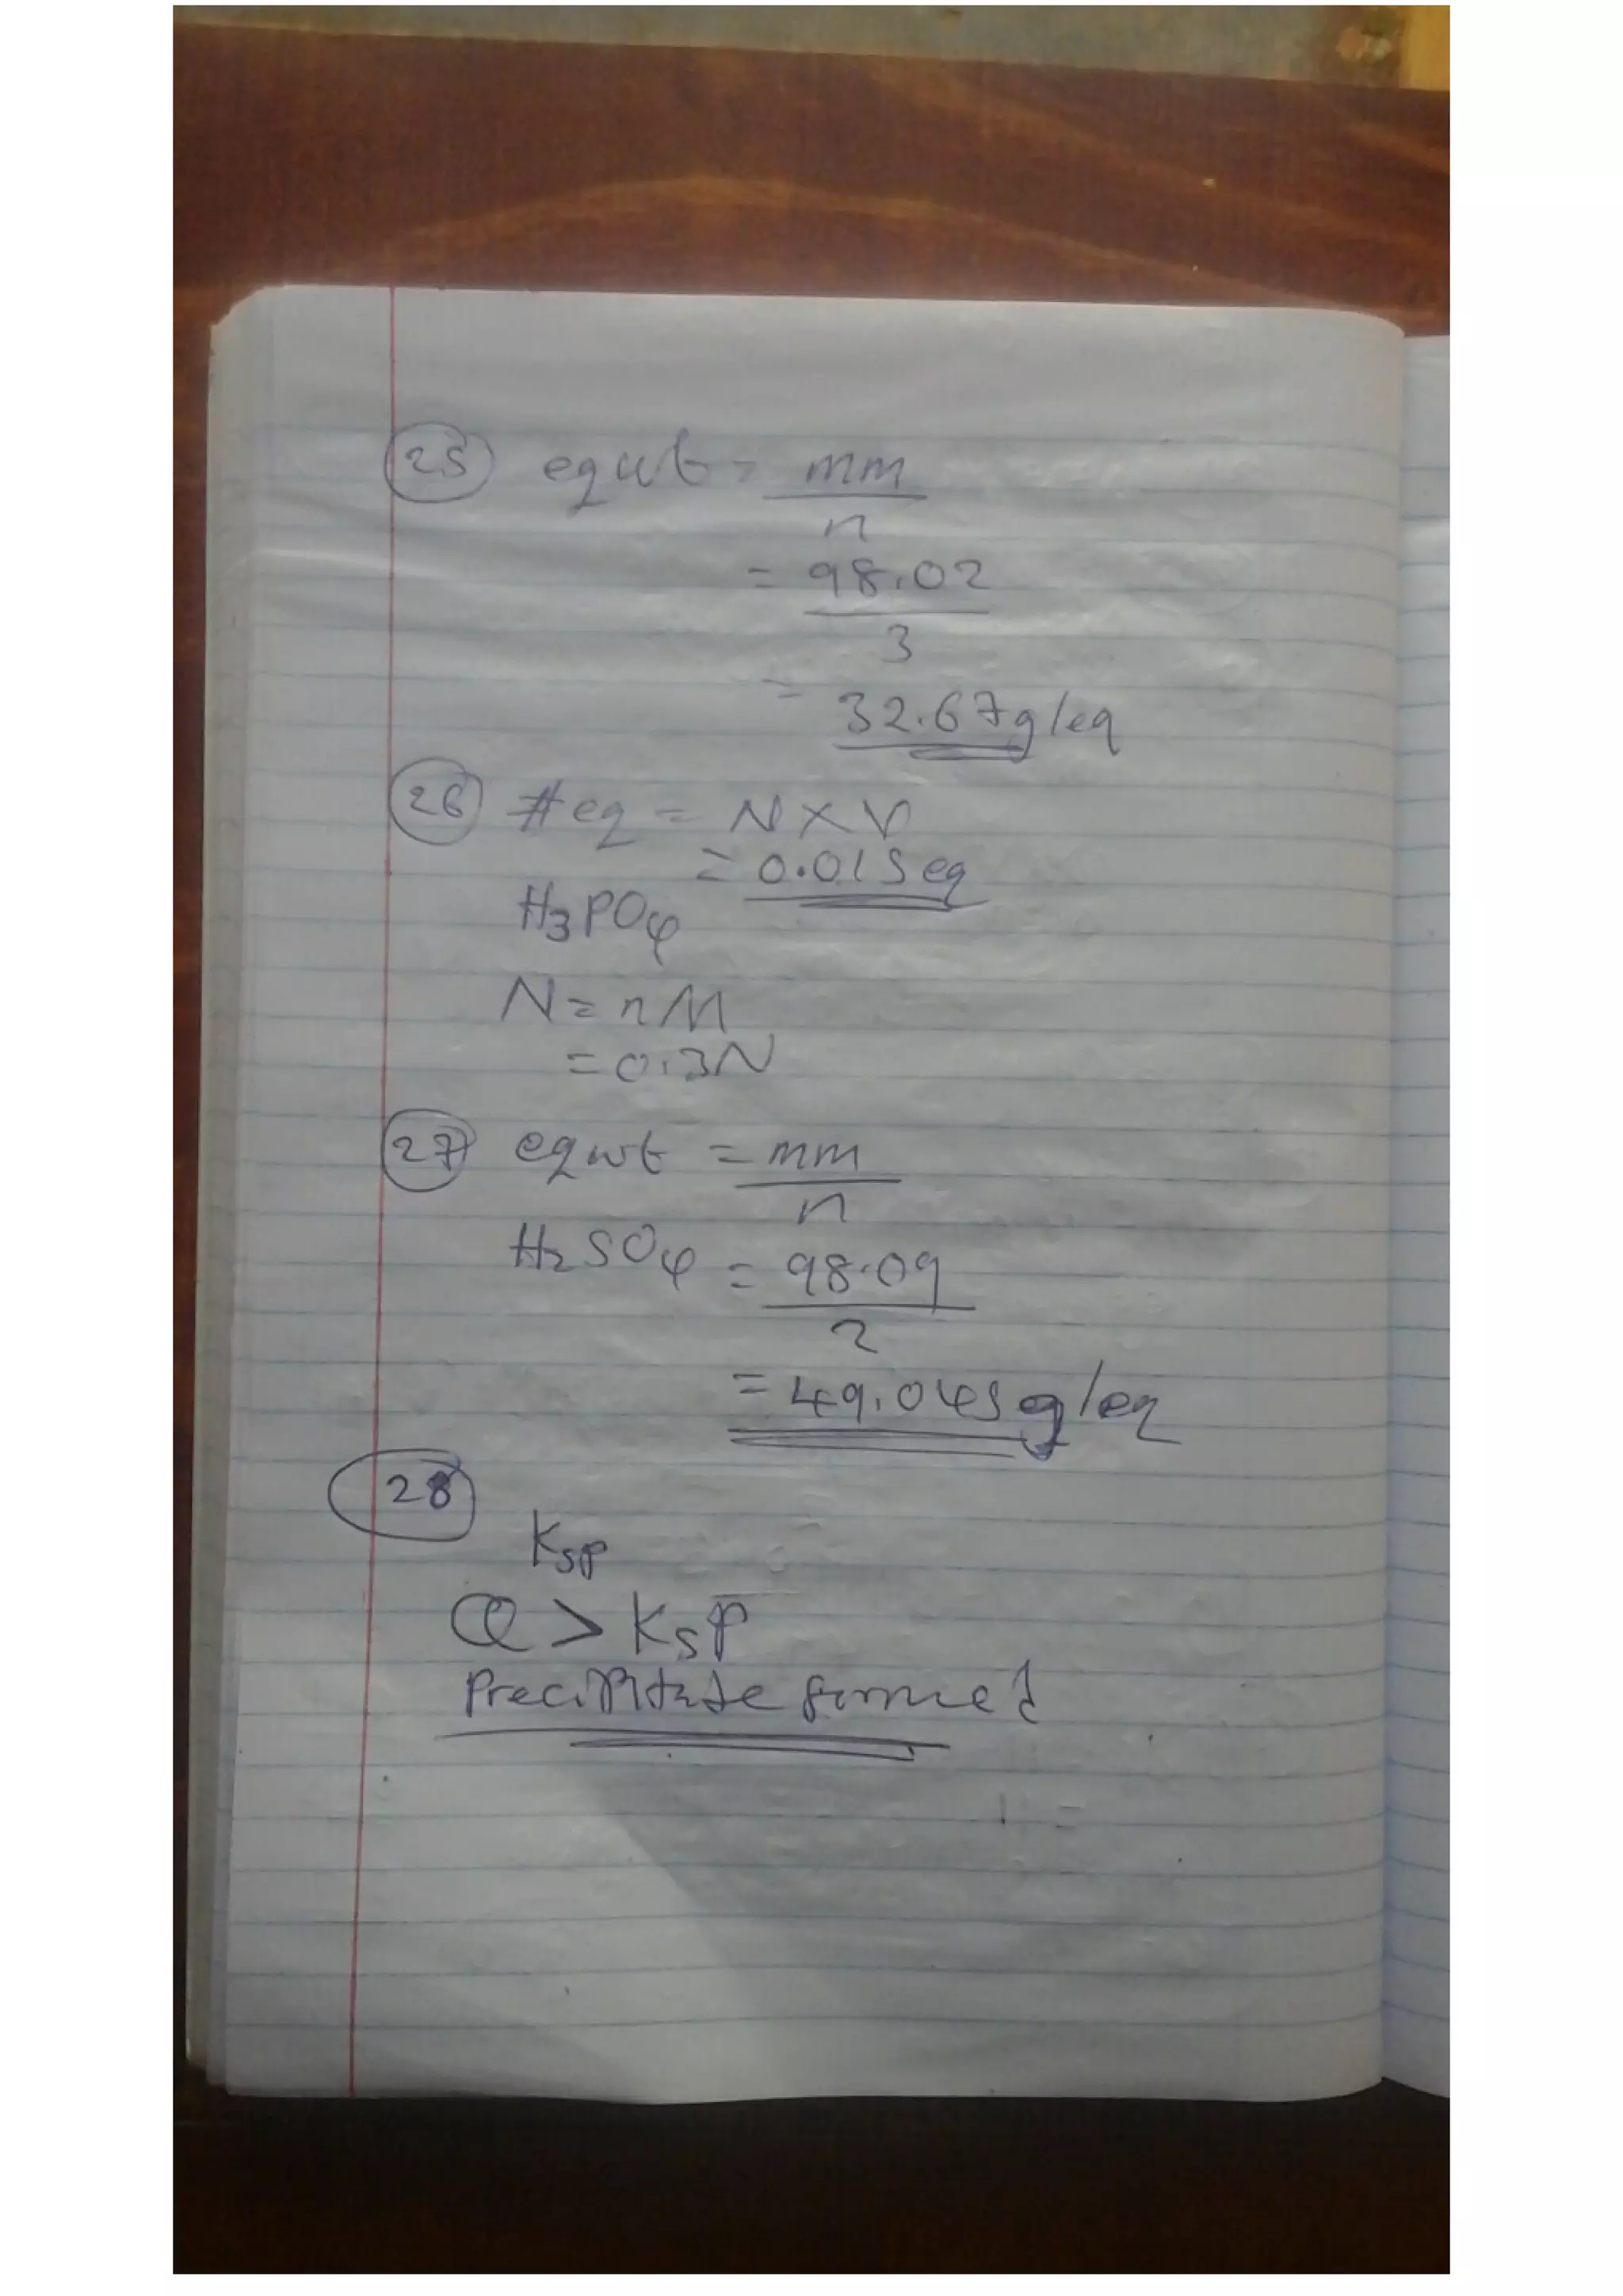 25 eqwt = mm
n
= 98.02
3
= 32.67g/eq
26 #eq = N×V
= 0.015eq
H3PO4
N = nM
= 0.3N
27 eqwt = mm
n
H2SO4 = 98.09
2
= 49.045g/eq
28
Ksp
Q > Ksp
Precipitate formed